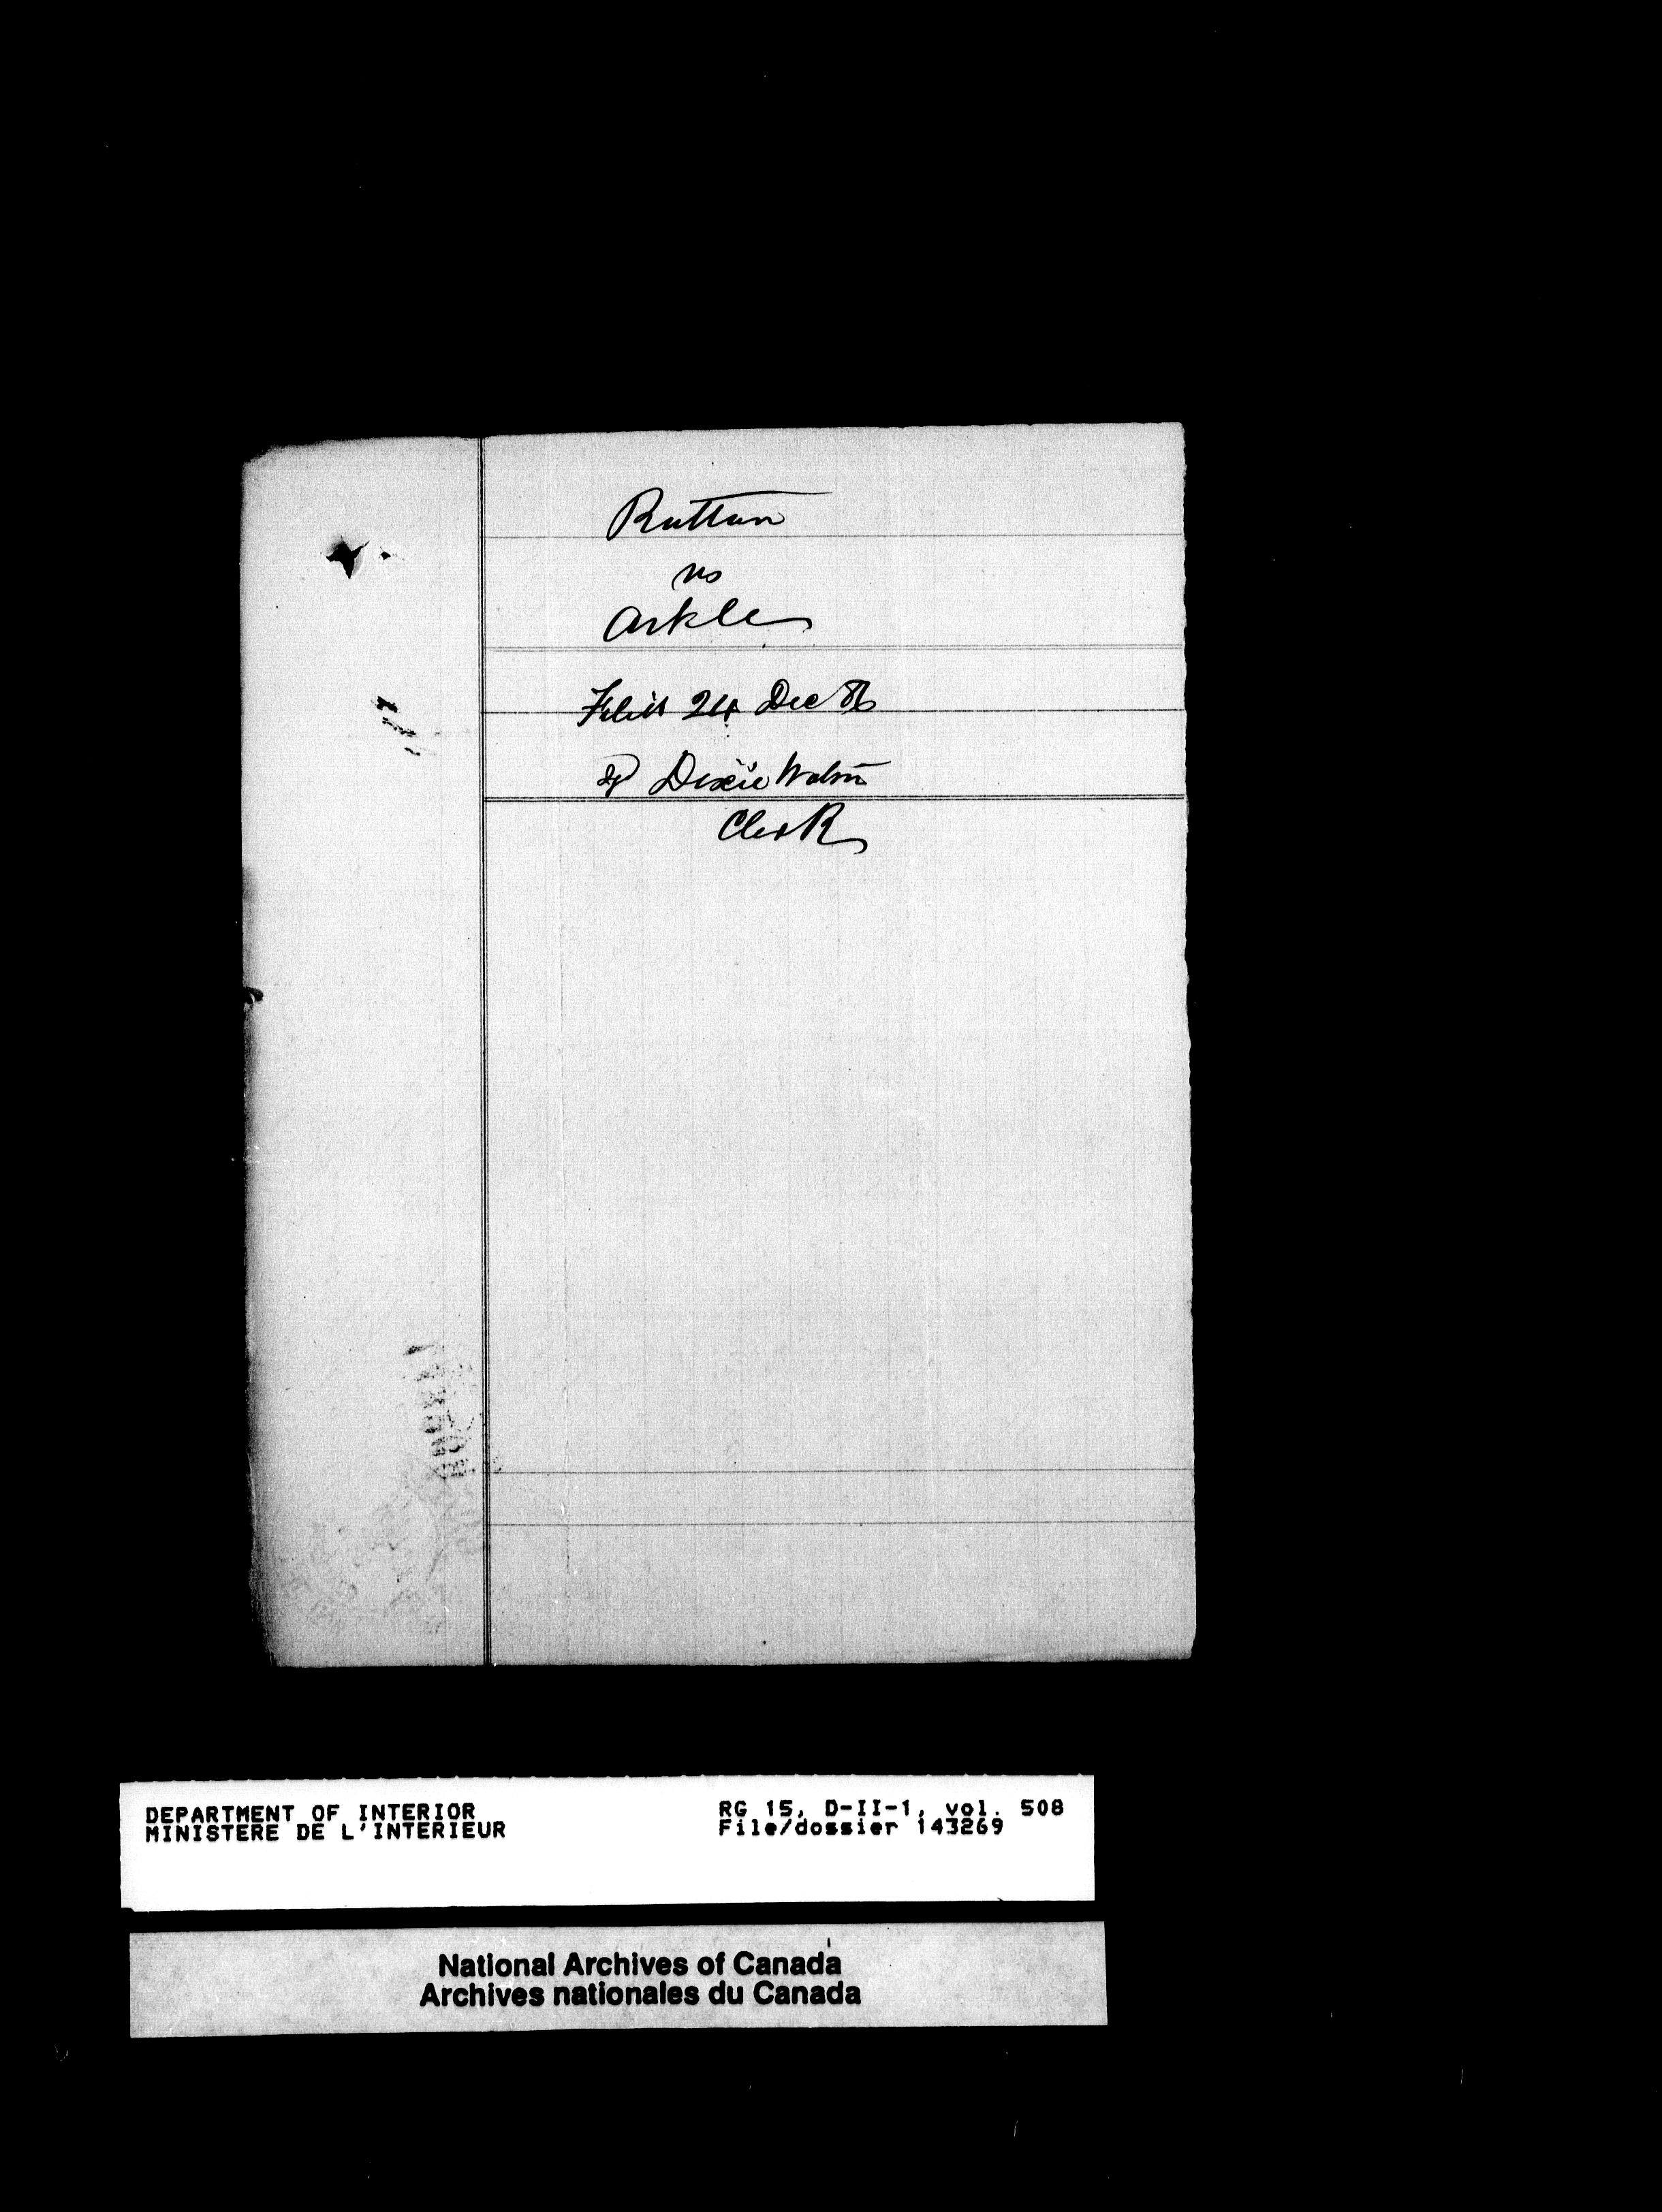 Ruttan
vs
Arkle
Filed 24 Dec 86
sgd Dixie Watson
Clerk
DEPARTMENT OF INTERIOR
MINISTERE DE L'INTERIEUR
RG 15, D-II-1, vol. 508
File/dossier 143269
National Archives of Canada
Archives nationales du Canada